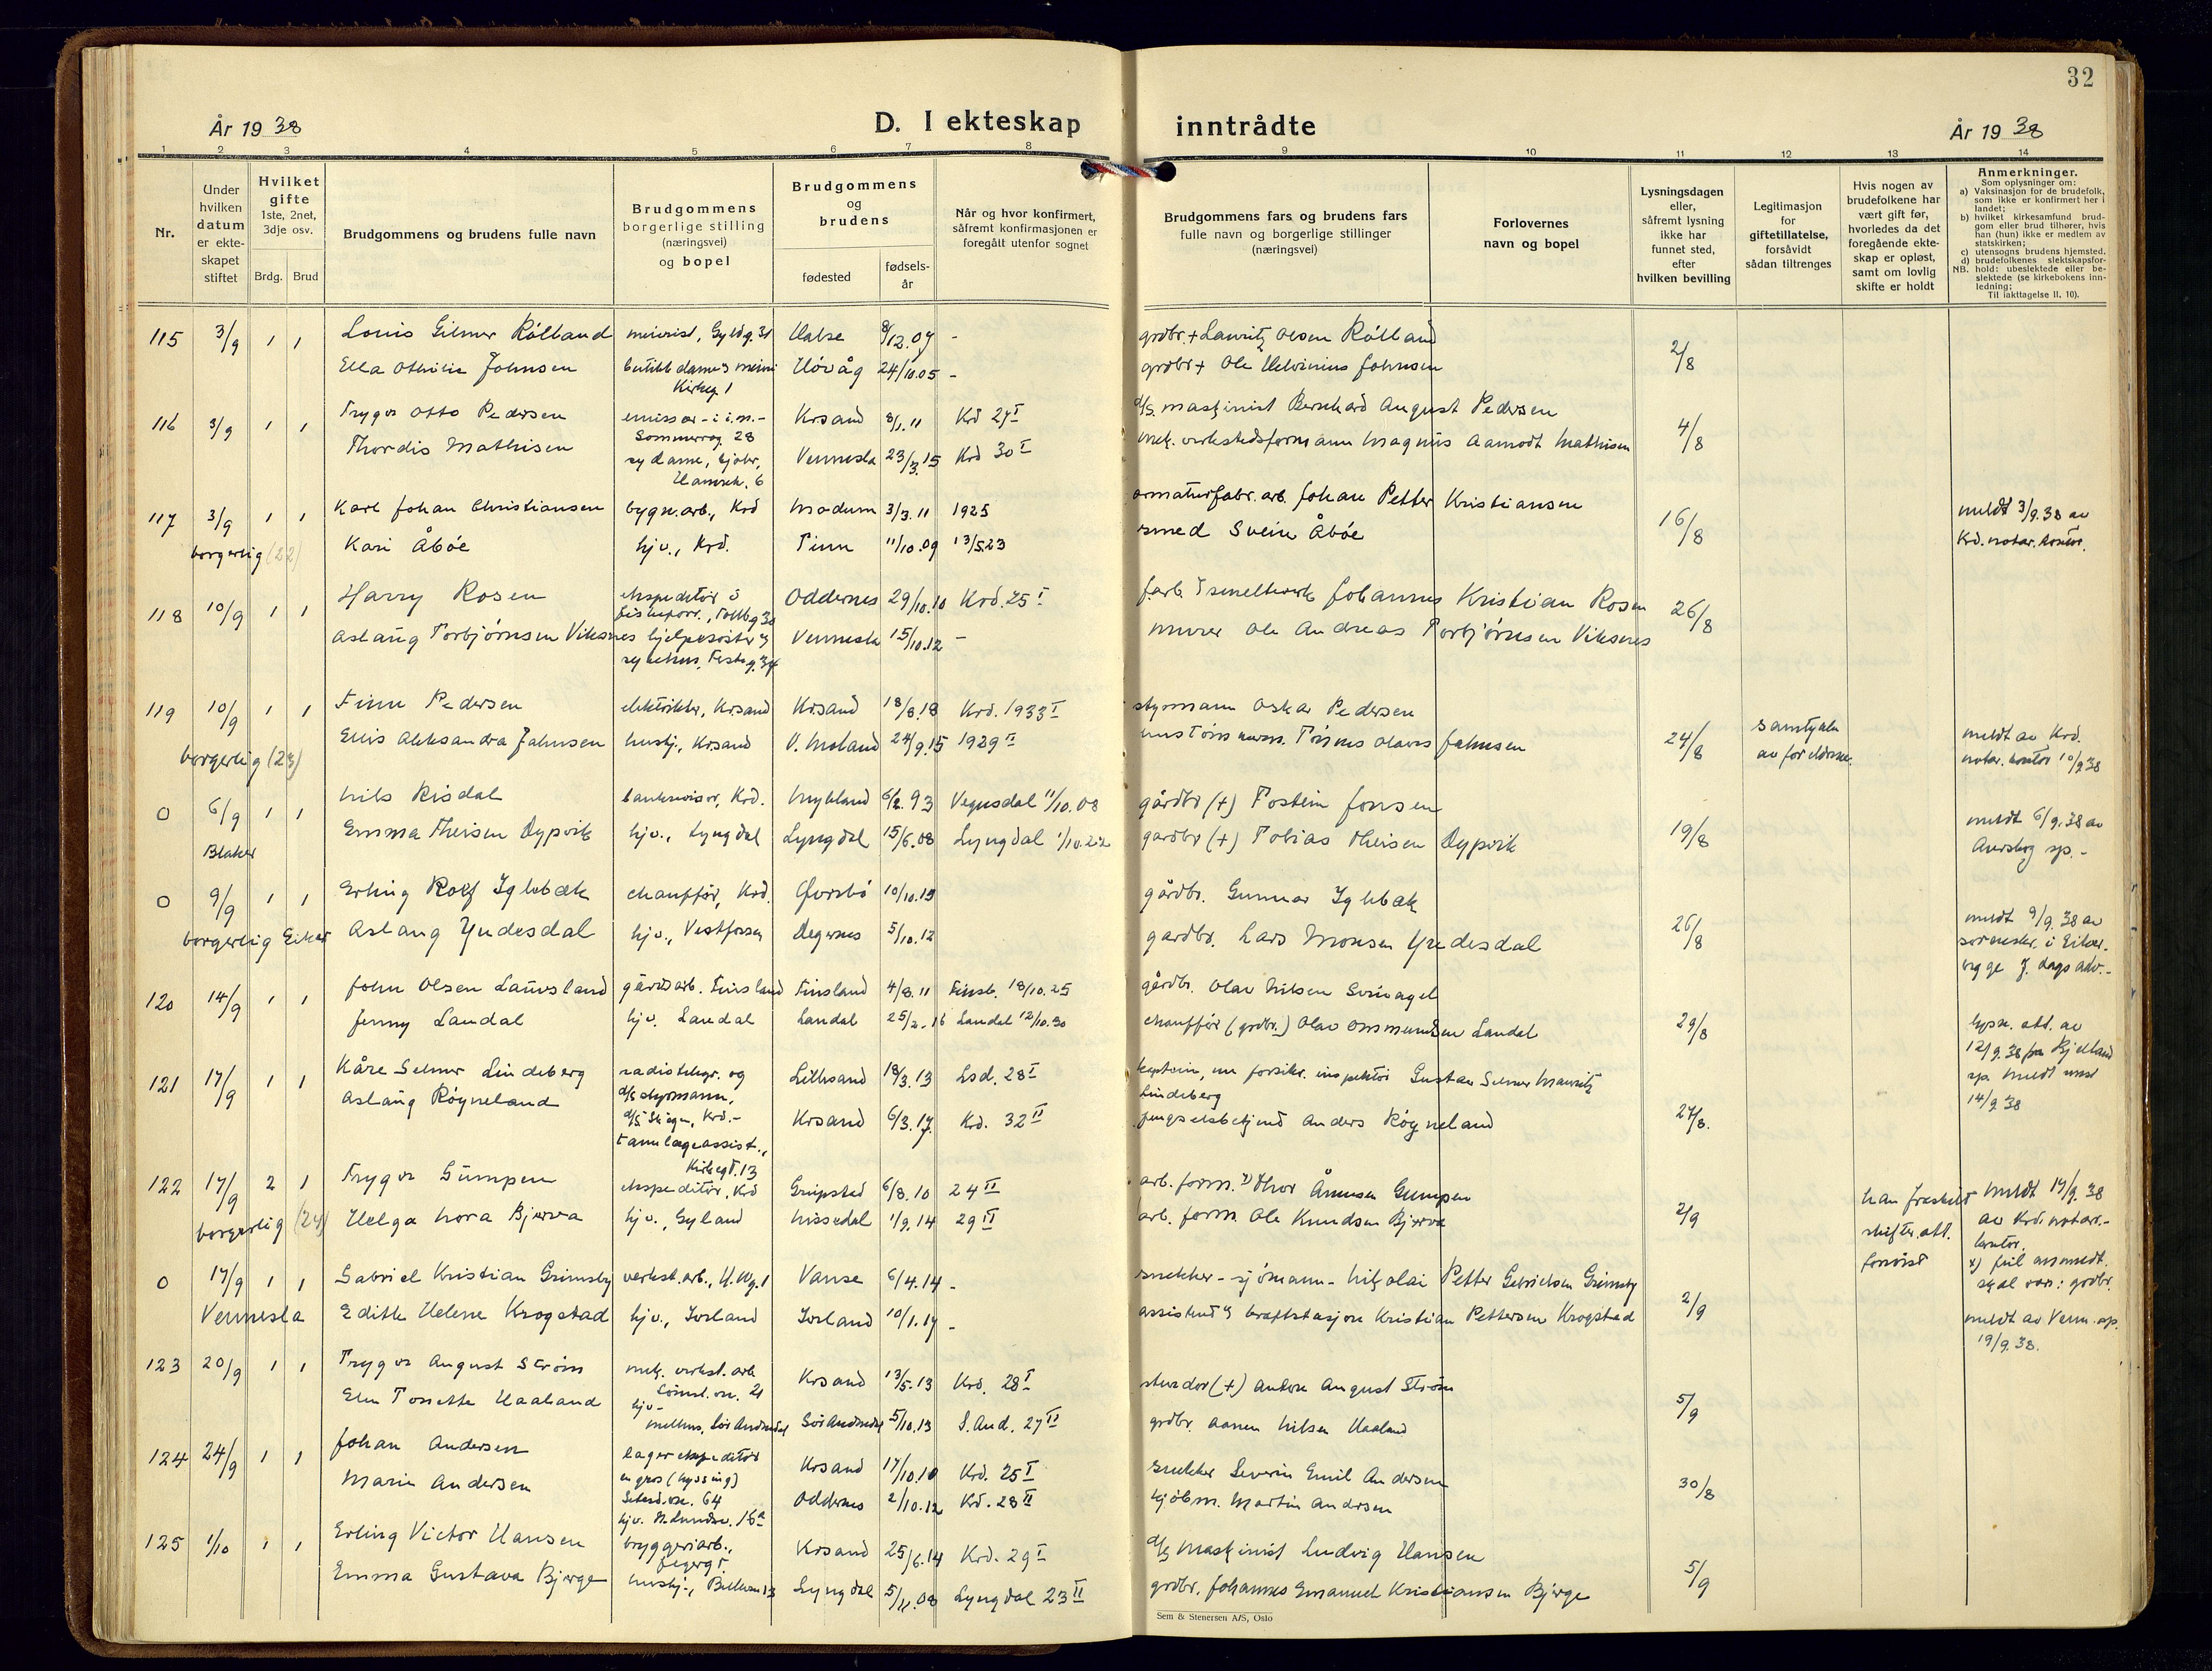 32
År 19 38
D. I ekteskap
inntrådte
År 19 38
1 2 3 4 5 6 7 8 9 10 11 12 13 14
Nr.
Under
hvilken
datum
er ekte-
skapet
stiftet
Hvilket
gifte
1ste, 2net,
3dje osv.
Brdg. Brud
Brudgommens og brudens fulle navn
Brudgommens
borgerlige stilling
(næringsvei)
og bopel
Brudgommens
og
brudens
fødested
fødsels-
år
Når og hvor konfirmert,
såfremt konfirmasjonen er
foregått utenfor sognet
Brudgommens fars og brudens fars
fulle navn og borgerlige stillinger
(næringsvei)
Forlovernes
navn og bopel
Lysningsdagen
eller,
såfremt lysning
ikke har
funnet sted,
efter
hvilken bevilling
Legitimasjon
for
giftetillatelse,
forsåvidt
sådan tiltrenges
Hvis nogen av
brudefolkene har
vært gift før,
hvorledes da det
foregående ekte-
skap er opløst,
samt om lovlig
skifte er holdt
Anmerkninger.
Som oplysninger om:
a) Vaksinasjon for de brudefolk,
som ikke er konfirmert her i
landet;
b) hvilket kirkesamfund brud-
gom eller brud tilhører, hvis
han (hun) ikke er medlem av
statskirken;
c) utensogns brudens hjemsted.
d) brudefolkenes slektskapsfor-
NB. hold: ubeslektede eller be-
slektede (se kirkebokens inn-
ledning;
Til iakttagelse II, 10).
115 3/9 1 1 Louis Gilmer Rölland meierist, Gyldg. 31 8/12.07 - grdbr. + Lauritz Olsen Rölland
Ella Othilie Johnsen Kirkeg 1 Høvåg 24/10.05 - grdbr + Ole Johnsen 2/8
116 3/9 1 1 Trygve Otto Pedersen emissær - i i.m. - Krsand 8/1.11 Krd 27 I d/s. maskinist Bernhard August Pedersen
Sommerog 28
Thordis Mathisen sydame, Vennesla 23/3.15 Krd 30 I mek. verkstedsformann Magnus Aamodt Mathisen 4/8
117 3/9 1 1 Karl Johan Christiansen bygn.arb., Krd Modum 3/3.11 1925 armaturfabr. arb. Johan Petter Kristiansen meldt 3/9.38 av
borgerlig (22) Kari Åbøe hjv., Krd. Tinn 11/10.09 13/5.23 smed Svein Åbøe 16/8 Krd. notar. kontor.
118 10/9 1 1 Harry Rosen ekspeditør i Oddernes 29/10.10 Krd. 25 I Johannes Kristian Rosen
Aslaug Torbjørnsen Viksnes hjelpesøster Vennesla 15/10.12 - murer Ole Andreas Torbjørnsen Viksnes 26/8
119 10/9 1 1 Finn Pedersen elektriker, Krsand Krsand 18/8.18 Krd. 1933 I styrmann Oskar Pedersen
borgerlig (23) Ellis Aleksandra Jahnsen hushj., Krsand V. Moland 24/9.15 1929 II Olaves Jahnsen 24/8 samtykke
av foreldrene. meldt av Krd.
notar. kontor 10/9.38
0 6/9 1 1 Nils Risdal bankrevisor, Krd. Mykland 6/2.93 Vegusdal 11/10.08 gårdbr (+) Tostein Jonsen
Blaker Emma Theisen Dypvik hjv., Lyngdal Lyngdal 15/6.08 Lyngdal 1/10.22 gardbr (+) Tobias Theisen Dypvik 19/8 meldt 6/9.38 av
Aurskog sp. -
0 9/9 1 1 Erling Rolf Iglebæk chauffør, Krd. 10/10.13 gårdbr. Gunnar Iglebæk
borgerlig Eiker Aslaug Yndesdal hjv., Vestfossen Degernes 5/10.12 gardbr. Lars Monsen Yndesdal 26/8 meldt 9/9.38 av
sorenskr. i Eiker.
120 14/9 1 1 John Olsen Lauvsland gårdsarb. Finsland Finsland 4/8.11 Finsl. 18/10.25 gårdbr. Olav Nilsen
Jenny Laudal hjv. Laudal Laudal 25/2.16 Laudal 12/10.30 chauffør (grdbr.) Olav Ommundsen Laudal 29/8 lysn. att. av
12/9.38 fra Bjelland
sp. meldt
14/9.38
121 17/9 1 1 Kåre Selmer Lindeberg radiotelegr. og Lillesand 18/3.13 Lsd. 28 I kaptein, nu forsikr. inspektør Gustav Selmer Mauritz
Lindeberg
d/s styrmann,
Aslaug Røyneland tannlægeassist., Kirkegt. 13 Krsand 6/3.17 Krd. 32 II fengselsbetjent Anders Røyneland 27/8.
122 17/9 2 1 Trygve Gumpen ekspeditør, Krd Grimstad 6/8.10 24 II arb. form. x) Thor Ånensen Gumpen
borgerlig (24) Helga Nora Bjerva hjv., Gyland Nissedal 1/9.14 29 II arb. form. Ole Knudsen Bjerva 2/9 han fraskilt
skifte. att.
forevist meldt 17/9.38
av Krd. notar.-
kontor.
x) feil anmeldt.
skal være: grdbr.
0 17/9 1 1 Gabriel Kristian Grimsby verkst. arb., Vanse 6/4.14 - snekker - sjømann - Nikolai Petter Gabrielsen Grimsby
Vennesla Edith Helene Krogstad hjv., Iveland Iveland 10/1.17 - assistent v/ kraftstasjon Kristian Pettersen Krogstad 2/9 meldt av Venn. sp.
19/9.38.
123 20/9 1 1 Trygve August Strøm mek. verkst. arb Krsand 13/5.13 Krd. 28 I (+) Anton August Strøm
Elen Tonette Haaland hjv- Sør Audnedal 5/10.13 S. Aud. 27 II grdbr. Aanen Nilsen Haaland 5/9
124 24/9 1 1 Johan Andersen lagerekspeditør Krsand 17/10.10 Krd. 25 I snekker Severin Emil Andersen
en gros (hyssing)
Marie Andersen Oddernes 2/10.12 Krd. 28 II kjøbm. Martin Andersen 30/8
125 1/10 1 1 Erling Victor Hansen bryggeriarb., Krsand 25/6.14 Krd. 29 I d/s maskinist Ludvig Hansen
Emma Gustava Bjørge hushj., Lyngdal 5/11.08 Lyngdal 23 II grdbr. Johannes Emanuel Kristiansen Bjørge 5/9
Sem & Stenersen A/S, Oslo